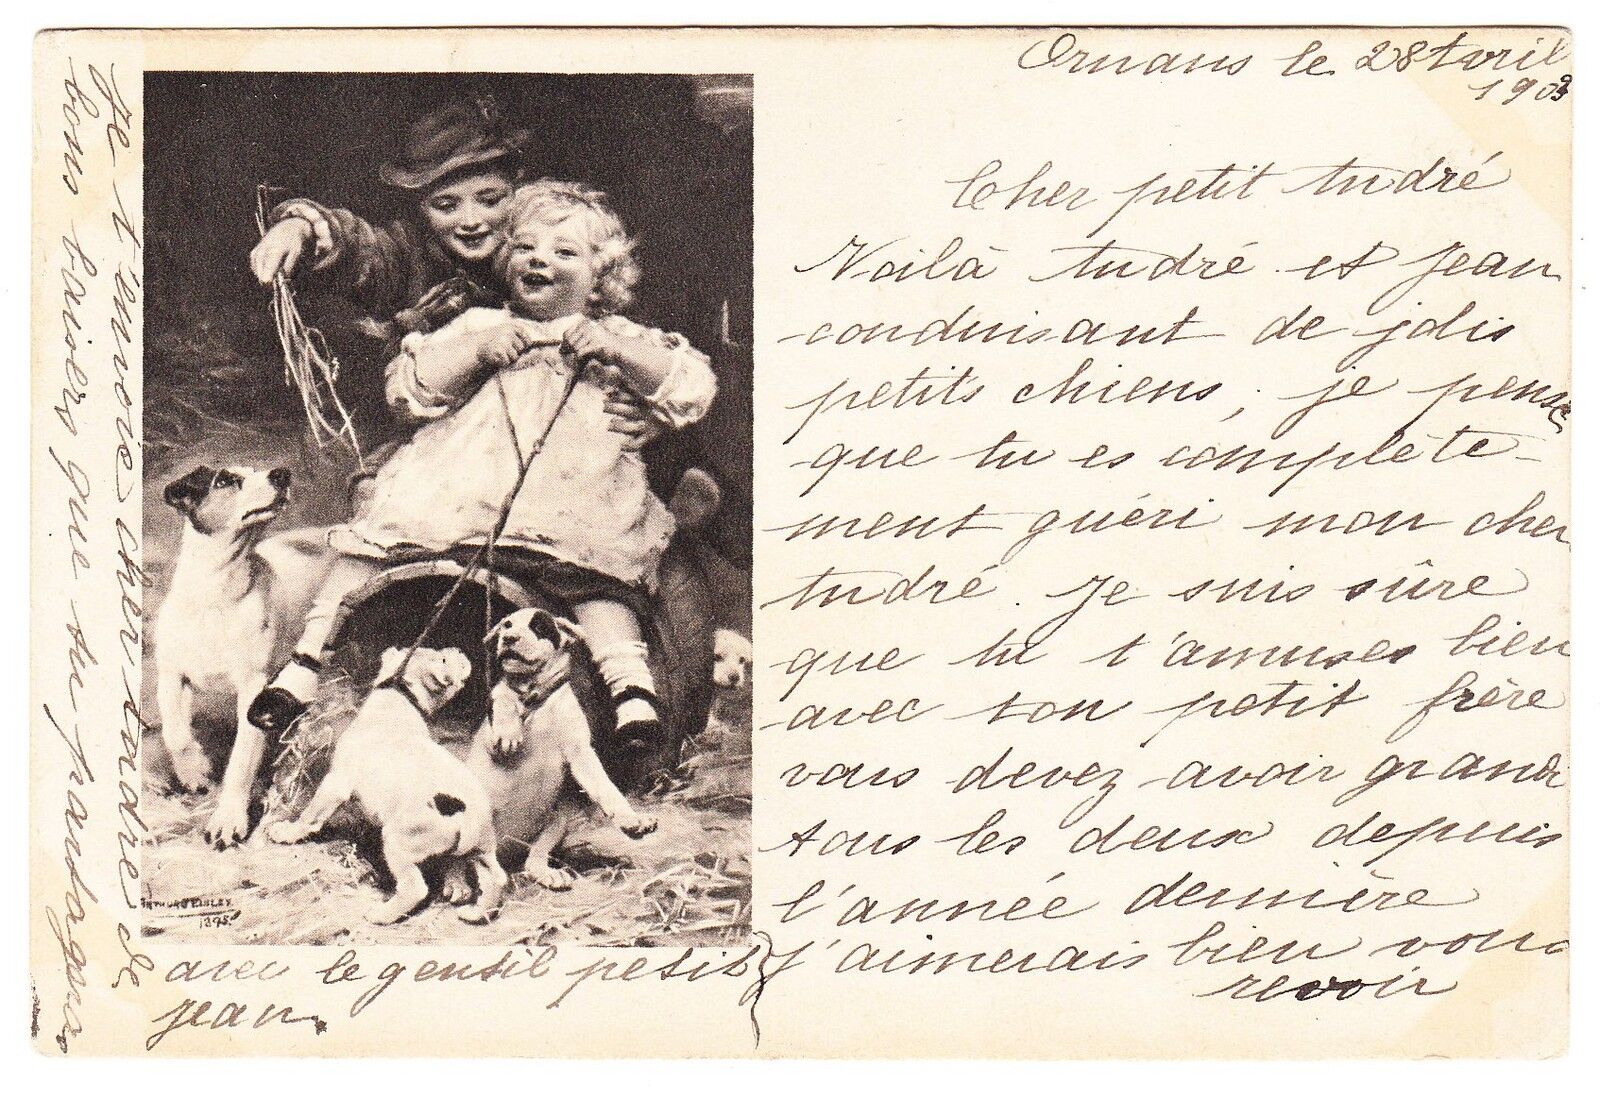 Ornans le 28 Avril
1903
Cher petit André
Voilà André et Jean
conduisant de jolis
petits chiens, je pense
que tu es complète-
ment guéri mon cher
André. Je suis sûre
que tu t'amuses bien
avec ton petit frère
vous devez avoir grandi
tous les deux depuis
l'année dernière
J'aimerais bien vous
revoir
Je t'envoie cher André de
bons baisers que tu partageras
avec le gentil petit
Jean.
ARTHUR J ELSLEY
1895